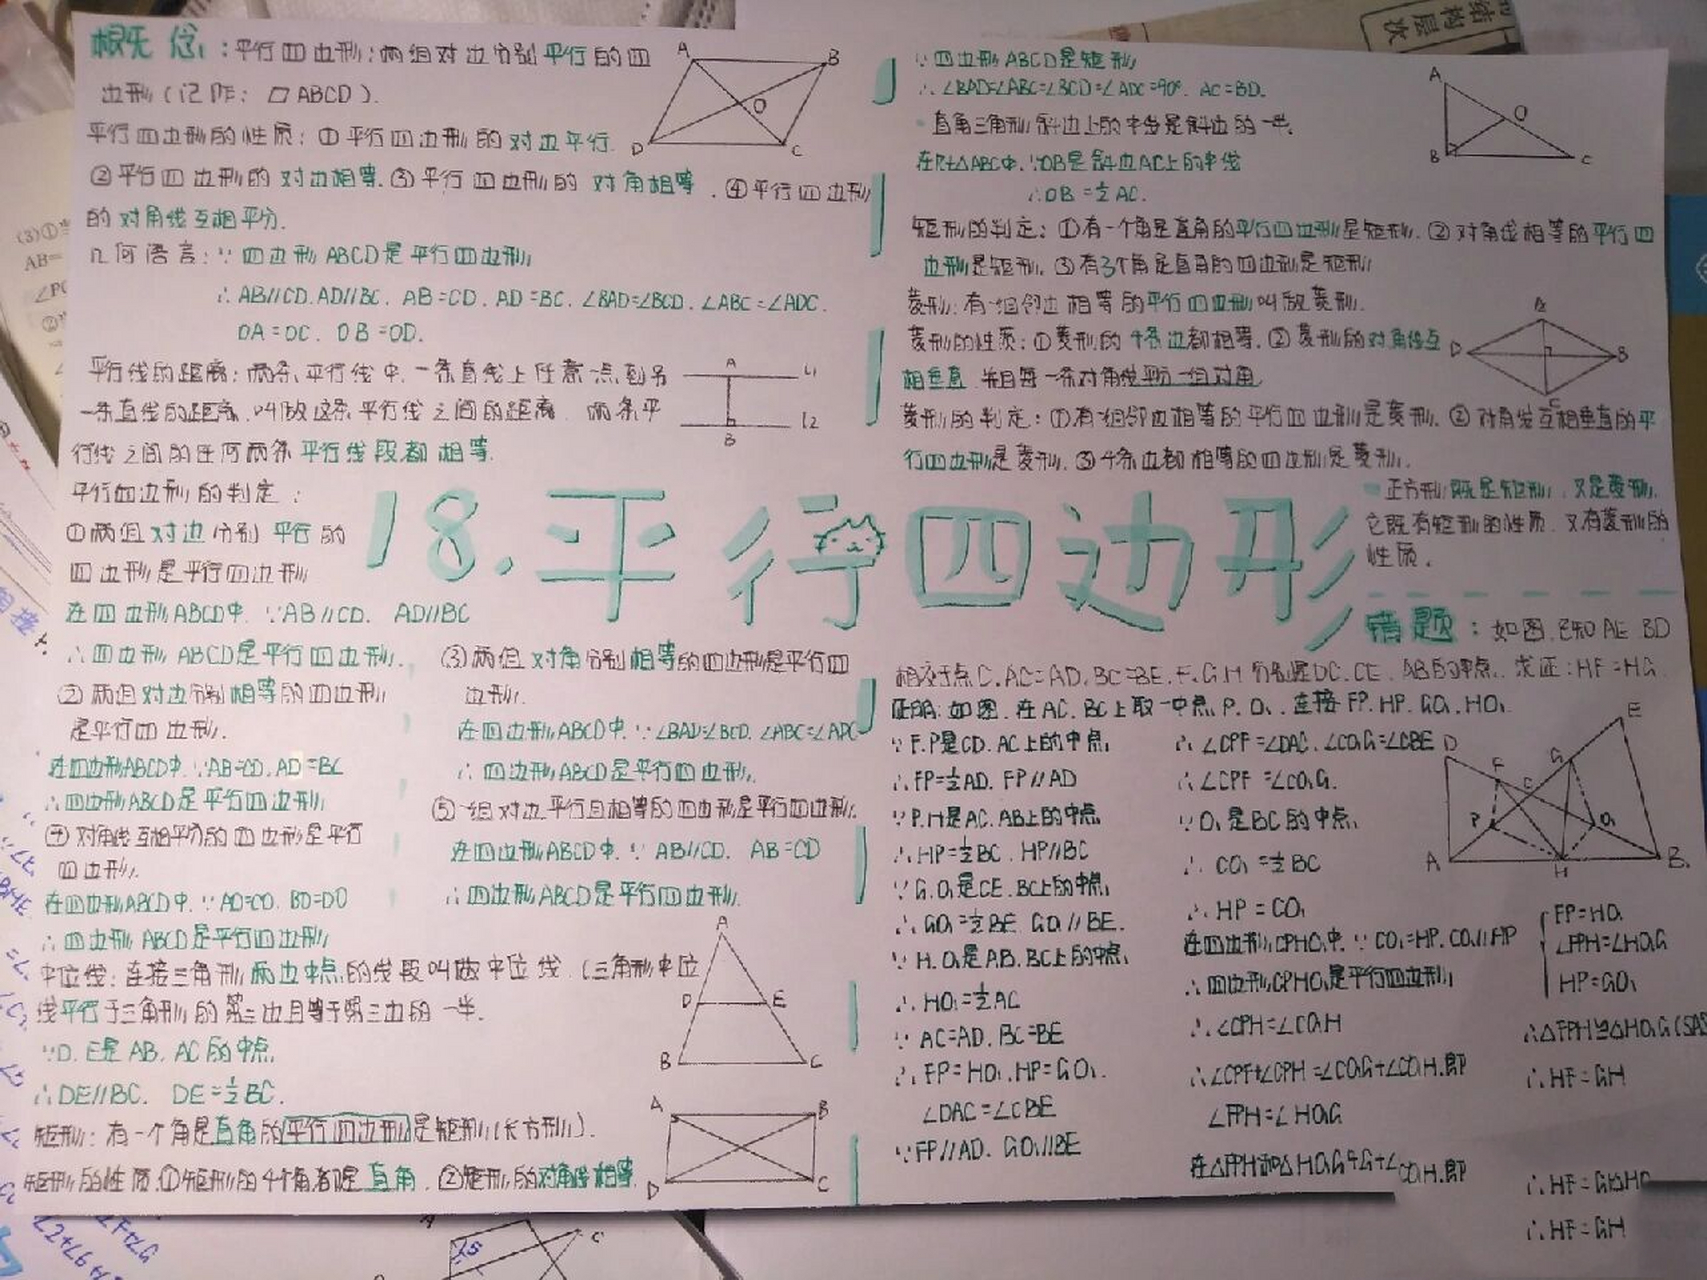 概念：平行四边形：两组对边分别平行的四
边形（记作：▱ABCD）.
平行四边形的性质：①平行四边形的对边平行.
②平行四边形的对边相等.③平行四边形的对角相等.④平行四边形
的对角线互相平分.
几何语言：∵四边形ABCD是平行四边形
∴AB//CD.AD//BC.AB=CD.AD=BC.∠BAD=∠BCD.∠ABC=∠ADC.
OA=OC.OB=OD.
平行线的距离：两条平行线中,一条直线上任意一点到另
一条直线的距离,叫做这条平行线之间的距离.两条平
行线之间的任何两条平行线段都相等.
平行四边形的判定：
①两组对边分别平行的
四边形是平行四边形
在四边形ABCD中.∵AB//CD.AD//BC
∴四边形ABCD是平行四边形.
②两组对边分别相等的四边形
是平行四边形.
在四边形ABCD中.∵AB=CD.AD=BC
∴四边形ABCD是平行四边形
④对角线互相平分的四边形是平行
四边形.
在四边形ABCD中.∵AO=CO.BO=DO
∴四边形ABCD是平行四边形
18.平行四边形
③两组对角分别相等的四边形是平行四
边形.
在四边形ABCD中.∵∠BAD=∠BCD.∠ABC=∠ADC
∴四边形ABCD是平行四边形.
⑤一组对边平行且相等的四边形是平行四边形.
在四边形ABCD中.∵AB//CD.AB=CD
∴四边形ABCD是平行四边形.
中位线：连接三角形两边中点的线段叫做中位线.(三角形中位
线平行于三角形的第三边且等于第三边的一半.
∵D.E是AB.AC的中点
∴DE//BC.DE=½BC.
矩形：有一个角是直角的平行四边形是矩形(长方形).
矩形的性质.①矩形的4个角都是直角.②矩形的对角线相等.
∵四边形ABCD是矩形
∴∠BAD=∠ABC=∠BCD=∠ADC=90°.AC=BD.
直角三角形斜边上的中线是斜边的一半.
在Rt△ABC中.∵OB是斜边AC上的中线
∴OB=½AC.
矩形的判定：①有一个角是直角的平行四边形是矩形.②对角线相等的平行四
边形是矩形.③有3个角是直角的四边形是矩形
菱形：有一组邻边相等的平行四边形叫做菱形.
菱形的性质：①菱形的4条边都相等.②菱形的对角线互
相垂直.并且每一条对角线平分一组对角.
菱形的判定：①有一组邻边相等的平行四边形是菱形.②对角线互相垂直的平
行四边形是菱形.③4条边都相等的四边形是菱形.
正方形既是矩形,又是菱形.
它既有矩形的性质.又有菱形的
性质.
错题：如图.已知AE.BD
相交于点C.AC=AD.BC=BE.F.G.H分别是DC.CE.AB的中点.求证：HF=HG.
证明:如图.在AC.BC上取一中点P.O₁.连接FP.HP.GO₁.HO₁
∵F.P是CD.AC上的中点
∴FP=½AD.FP//AD
∵P.H是AC.AB上的中点
∴HP=½BC.HP//BC
∵G.O₁是CE.BC上的中点
∴GO₁=½BE.GO₁//BE.
∵H.O₁是AB.BC上的中点
∴HO₁=½AC
∵AC=AD.BC=BE
∴FP=HO₁.HP=GO₁.
∠DAC=∠CBE
∵FP//AD.GO₁//BE
∴∠CPF=∠DAC.∠CO₁G=∠CBE
∴∠CPF=∠CO₁G.
∵O₁是BC的中点
∴CO₁=½BC
∴HP=CO₁
在四边形CPHO₁中.∵CO₁=HP.CO₁//HP
∴四边形CPHO₁是平行四边形
∴∠CPH=∠CO₁H
∴∠CPF+∠CPH=∠CO₁G+∠CO₁H.即
∠FPH=∠HO₁G
FP=HO₁
∠FPH=∠HO₁G
HP=GO₁
∴△FPH≌△HO₁G(SAS
∴HF=GH
∴HF=GH